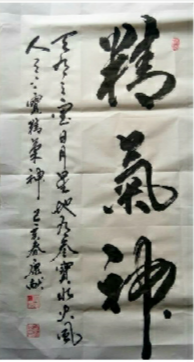 精氣神
天有三寶日月星地有叁寶水火風
人有三寶精氣神 己亥春